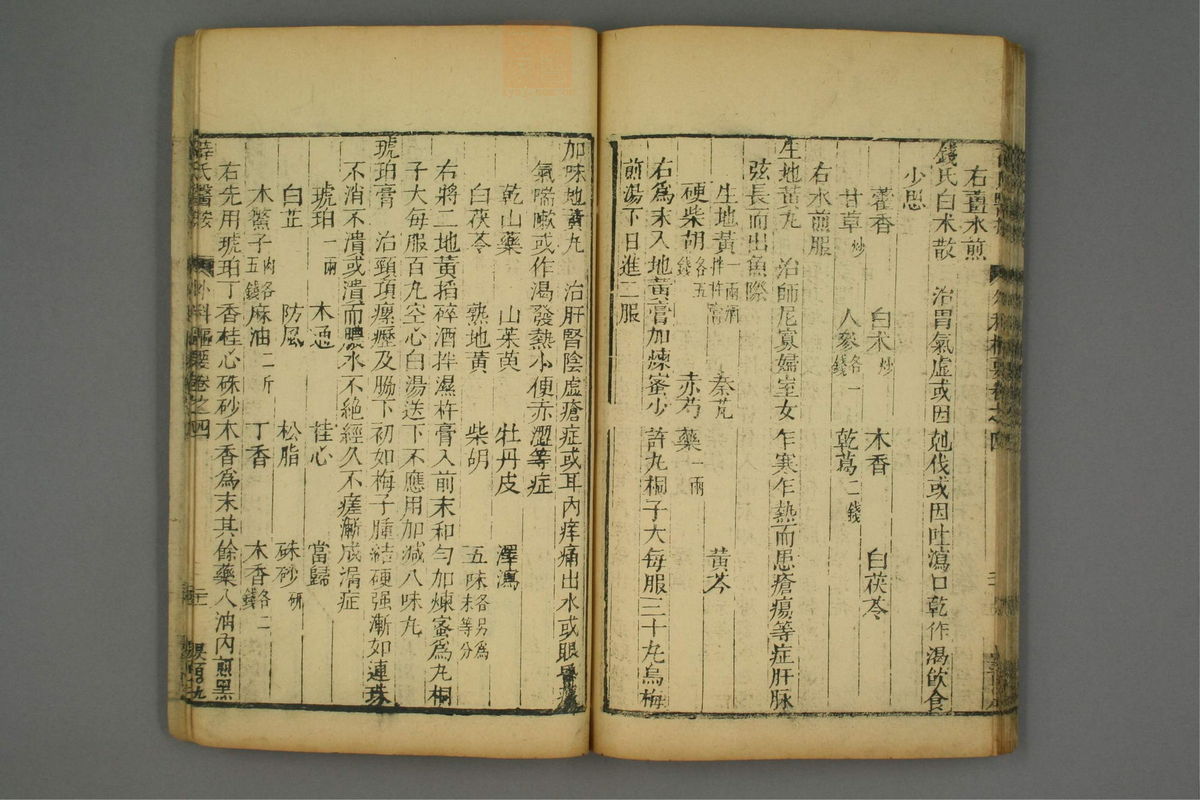 右薑水煎
錢氏白朮散 治胃氣虛或因尅伐或因吐瀉口乾作渴飲食
少思
藿香 白朮炒 木香 白茯苓
甘草炒 人參各一錢 乾葛二錢
右水煎服
生地黃丸 治師尼寡婦室女乍寒乍熱而患瘡瘍等症肝脉
弦長而出魚際
生地黃一兩酒拌杵膏 秦艽 黃芩
硬柴胡各五錢 赤芍藥一兩
右爲末入地黃膏加煉蜜少許丸桐子大每服三十丸烏梅
煎湯下日進二服
加味地黃丸 治肝腎陰虛瘡症或耳內痒痛出水或眼昏痰
氣喘嗽或作渴發熱小便赤澀等症
乾山藥 山茱萸 牡丹皮 澤瀉
白茯苓 熟地黃 柴胡 五味各另爲末等分
右將二地黃搯碎酒拌濕杵膏入前末和勻加煉蜜爲丸桐
子大每服百丸空心白湯送下不應用加減八味丸
琥珀膏 治頸項瘰癧及腋下初如梅子腫結硬强漸如連珠
不消不潰或潰而膿水不絕經久不瘥漸成漏症
琥珀一兩 木通 桂心 當歸
白芷 防風 松脂 硃砂研
木鱉子肉各五錢 麻油二斤 丁香 木香各二錢
右先用琥珀丁香桂心硃砂木香爲末其餘藥入油內煎黑
薛氏醫按 外科樞要卷之四